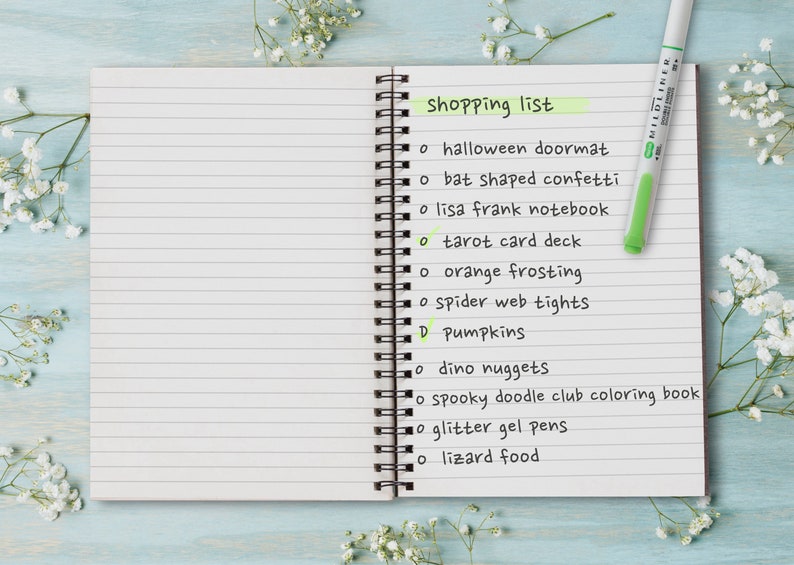 shopping list
o halloween doormat
o bat shaped confetti
o lisa frank notebook
o tarot card deck
o orange frosting
o spider web tights
D pumpkins
o dino nuggets
o spooky doodle club coloring book
o glitter gel pens
o lizard food
MILDLINER
DOUBLE ENDED